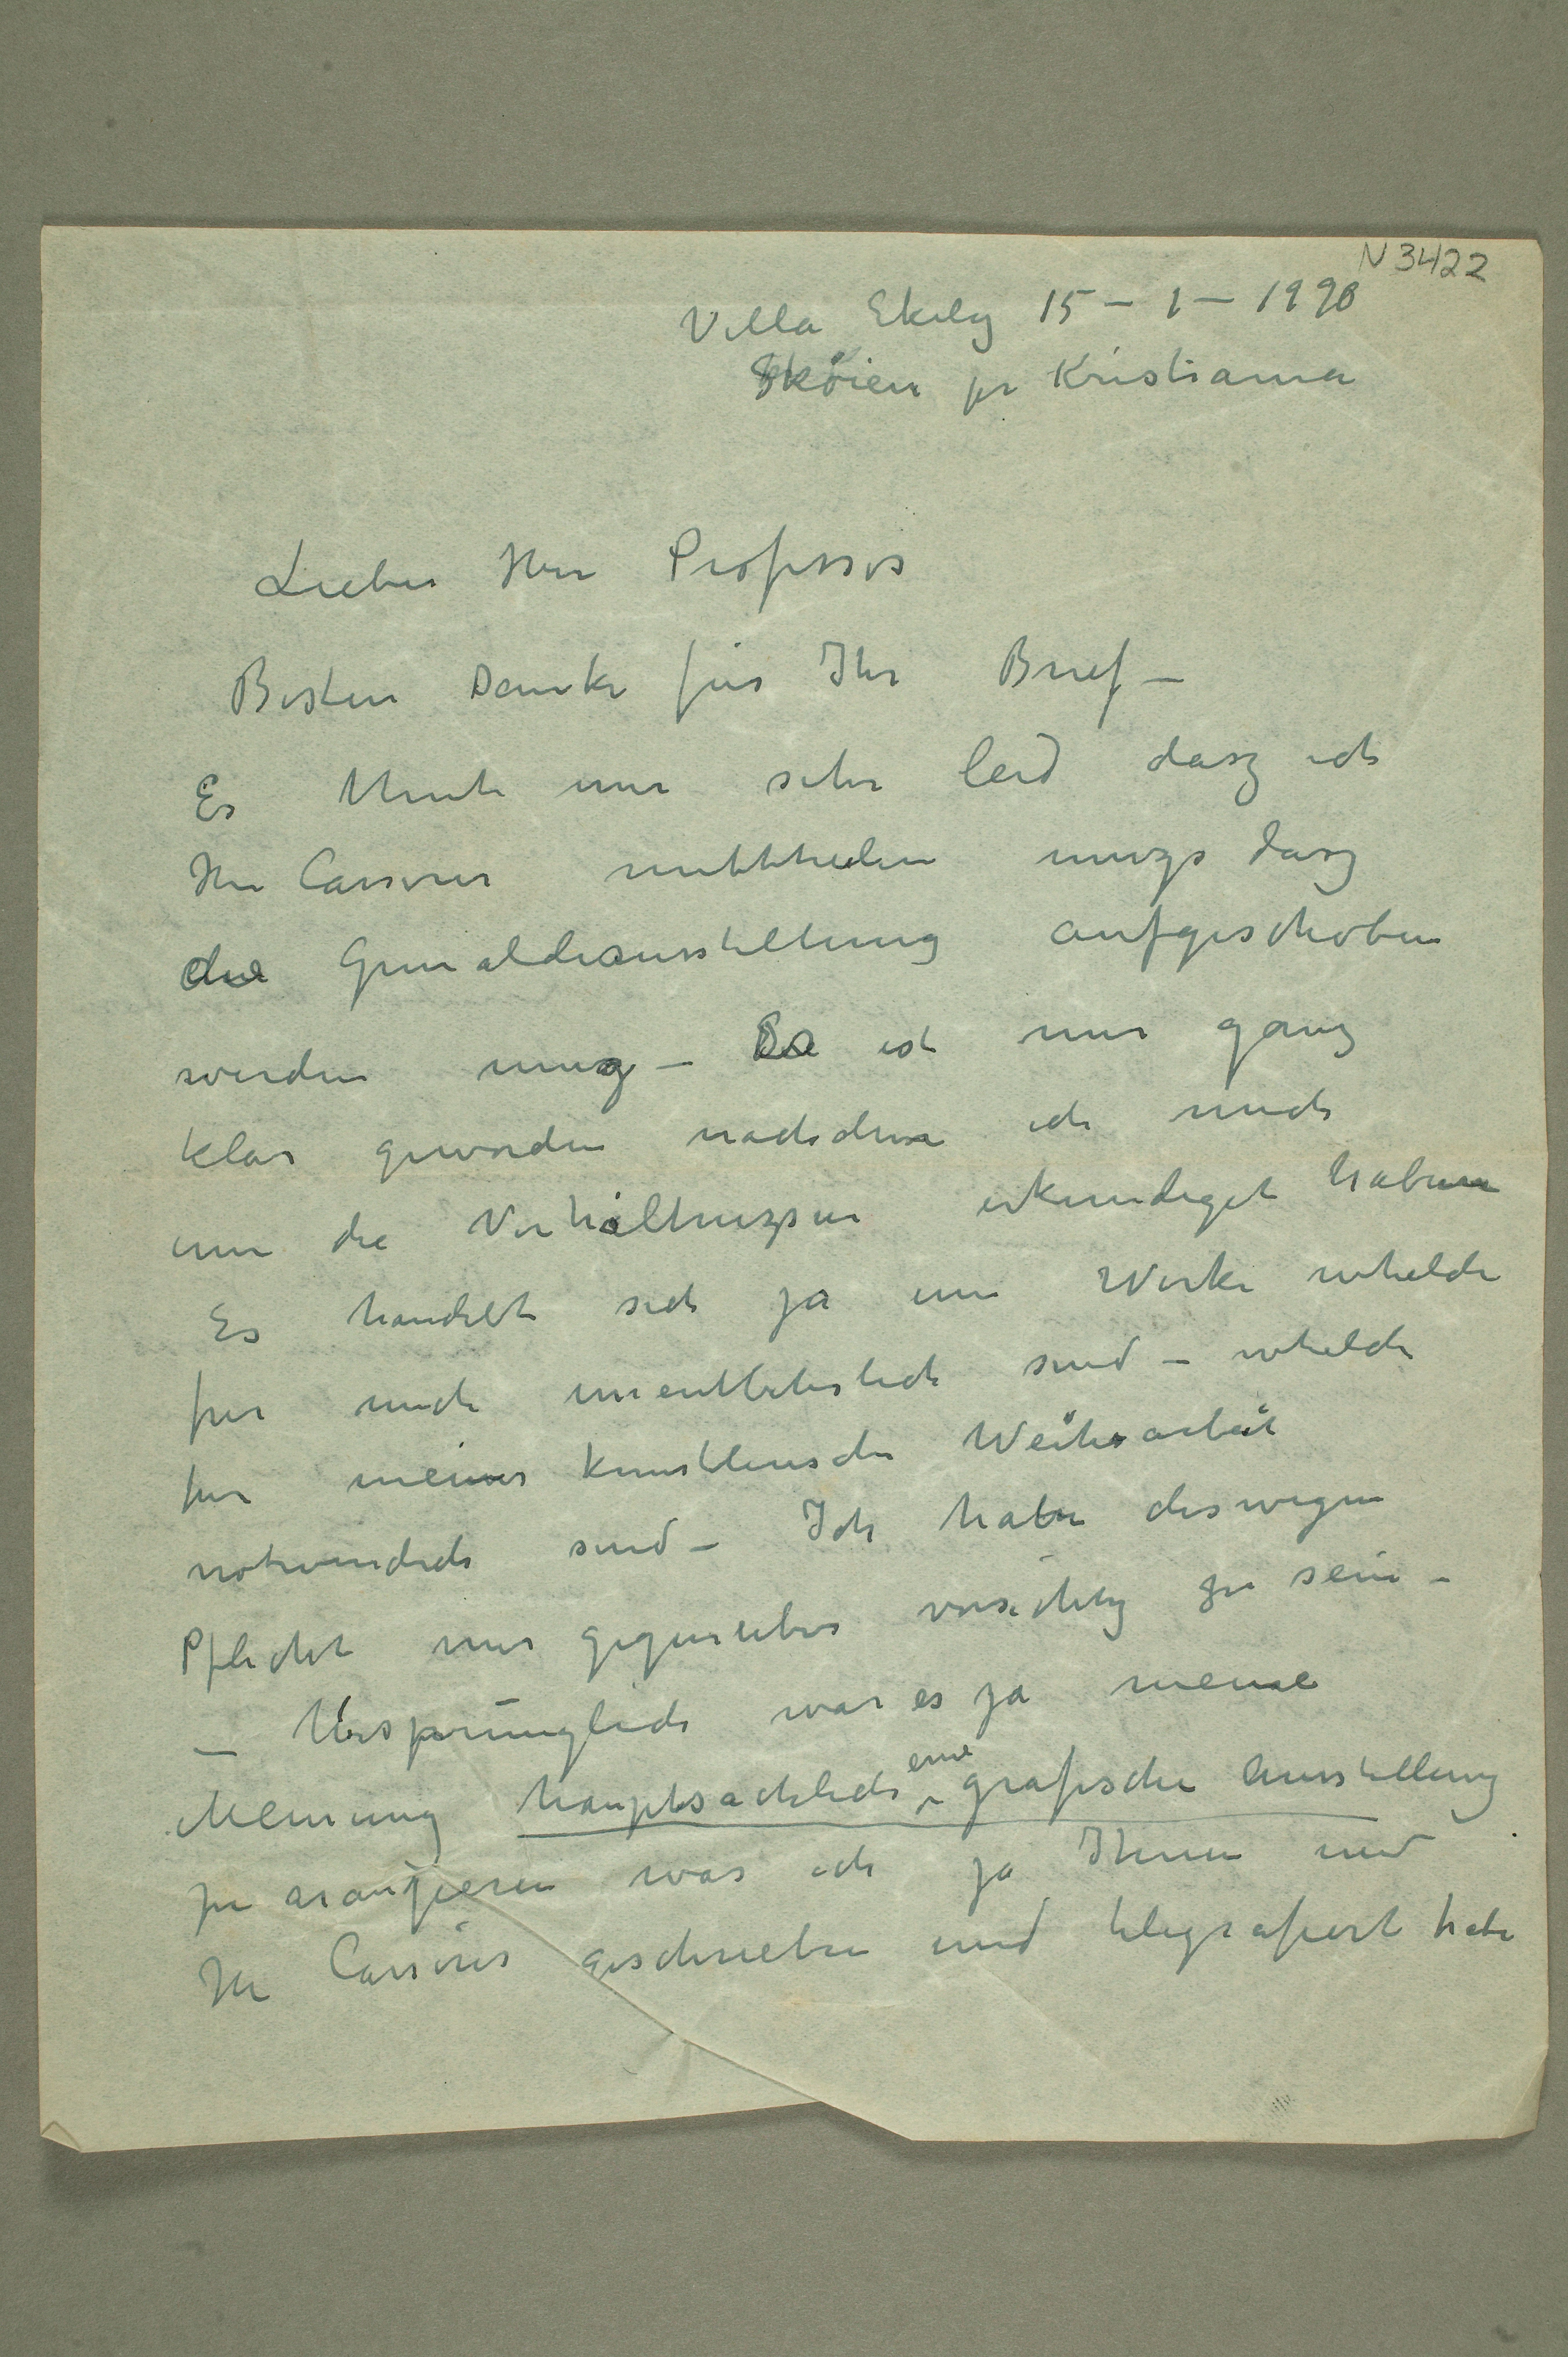 N 3422
Villa Ekely 15 – 1 – 1920
Skøien pr Kristiania
Lieber Herr Professor
Besten Danke für Ihr Brief –
Es thute mir sehr leid dasz ich
Hr Cassirer mittheilen muszs dasz
die Gemäldeausstellung aufgeschoben
werden musz – Es ist mir ganz
klar geworden nachdem ich mich
um die Verhältniszsen erkundiget haben
Es handelt sich ja um Werke whelche
fur mich unentbehrlich sind – whelche
fur meine kunstlerische Weiterarbeit
notwendich sind – Ich habe deswegen
Pflicht mir gegenuber vorsichtig zu sein –
– Ursprünglich war es ja meine
Meinung hauptsachlich eine grafische Ausstellung
zu arangieren was ich ja Ihnen und
Hr Cassirer geschrieben und telegrafiert habe